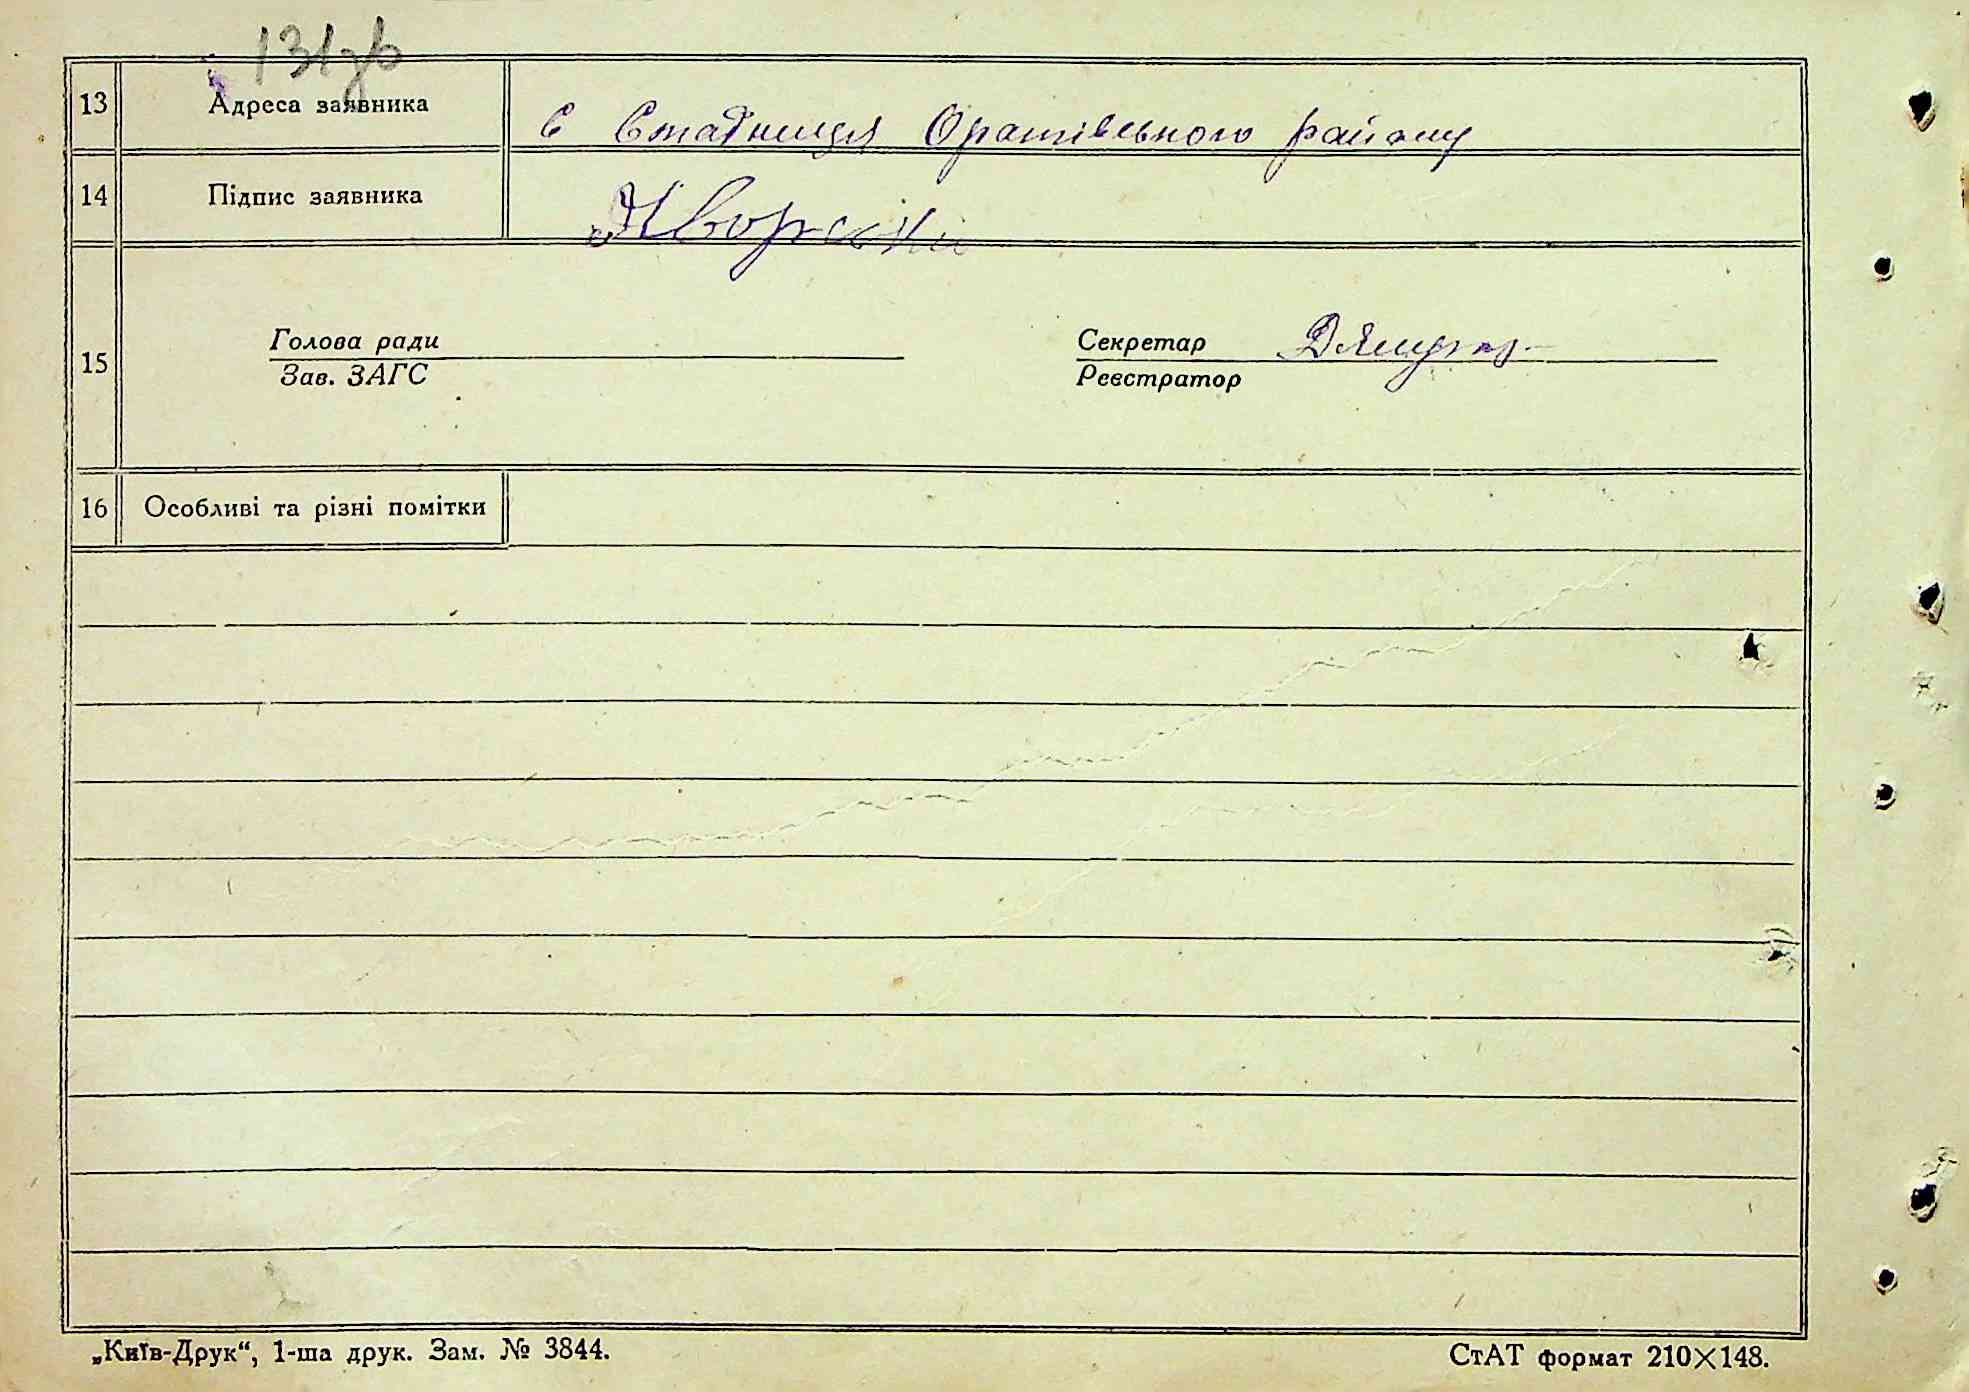 131зв
13 Адреса заявника с Стадниця Оратівського району
14 Підпис заявника Яворский
15 Голова ради Секретар
Зав. ЗАГС Реєстратор
16 Особливі та різні помітки
„Київ-Друк“, 1-ша друк. Зам. № 3844.
СтАТ формат 210×148.